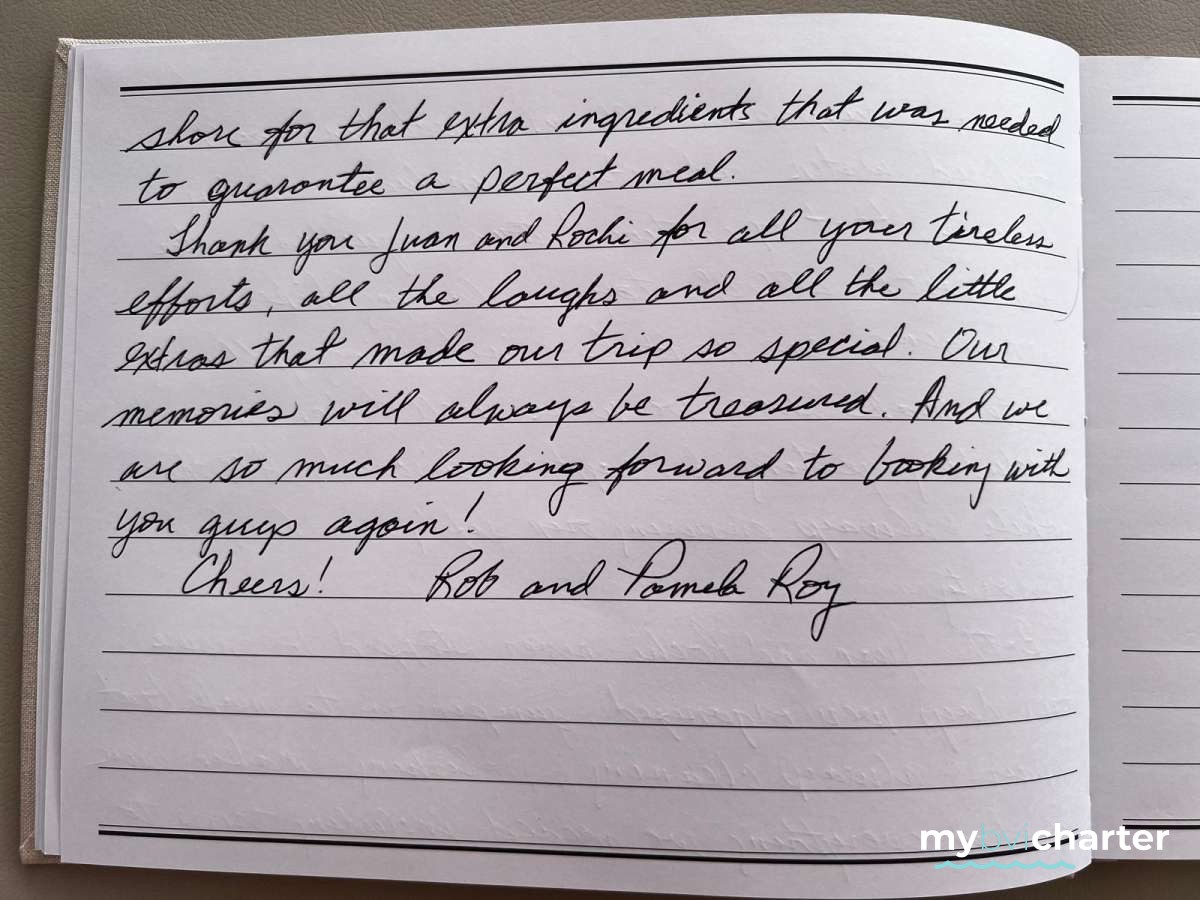 shore for that extra ingredients that was needed
to guarantee a perfect meal.
Thank you Juan and Rochi for all your tireless
efforts, all the laughs and all the little
extras that made our trip so special. Our
memories will always be treasured. And we
are so much looking forward to booking with
you guys again!
Cheers! Rob and Pamela Roy
mybvicharter